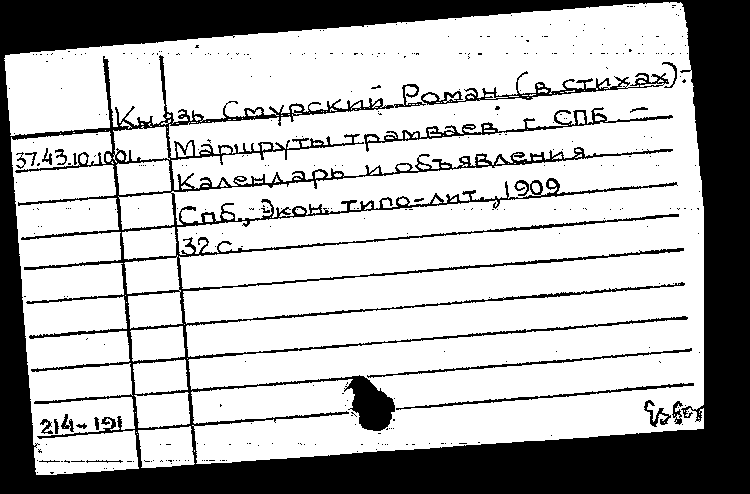 Князь Стурский Роман (в стихах).-
37.43.10.1001. Маршруты трамваев г. СПБ -
Календарь и объявления.
Спб., Экон. типо-лит., 1909
32 с.
214-191